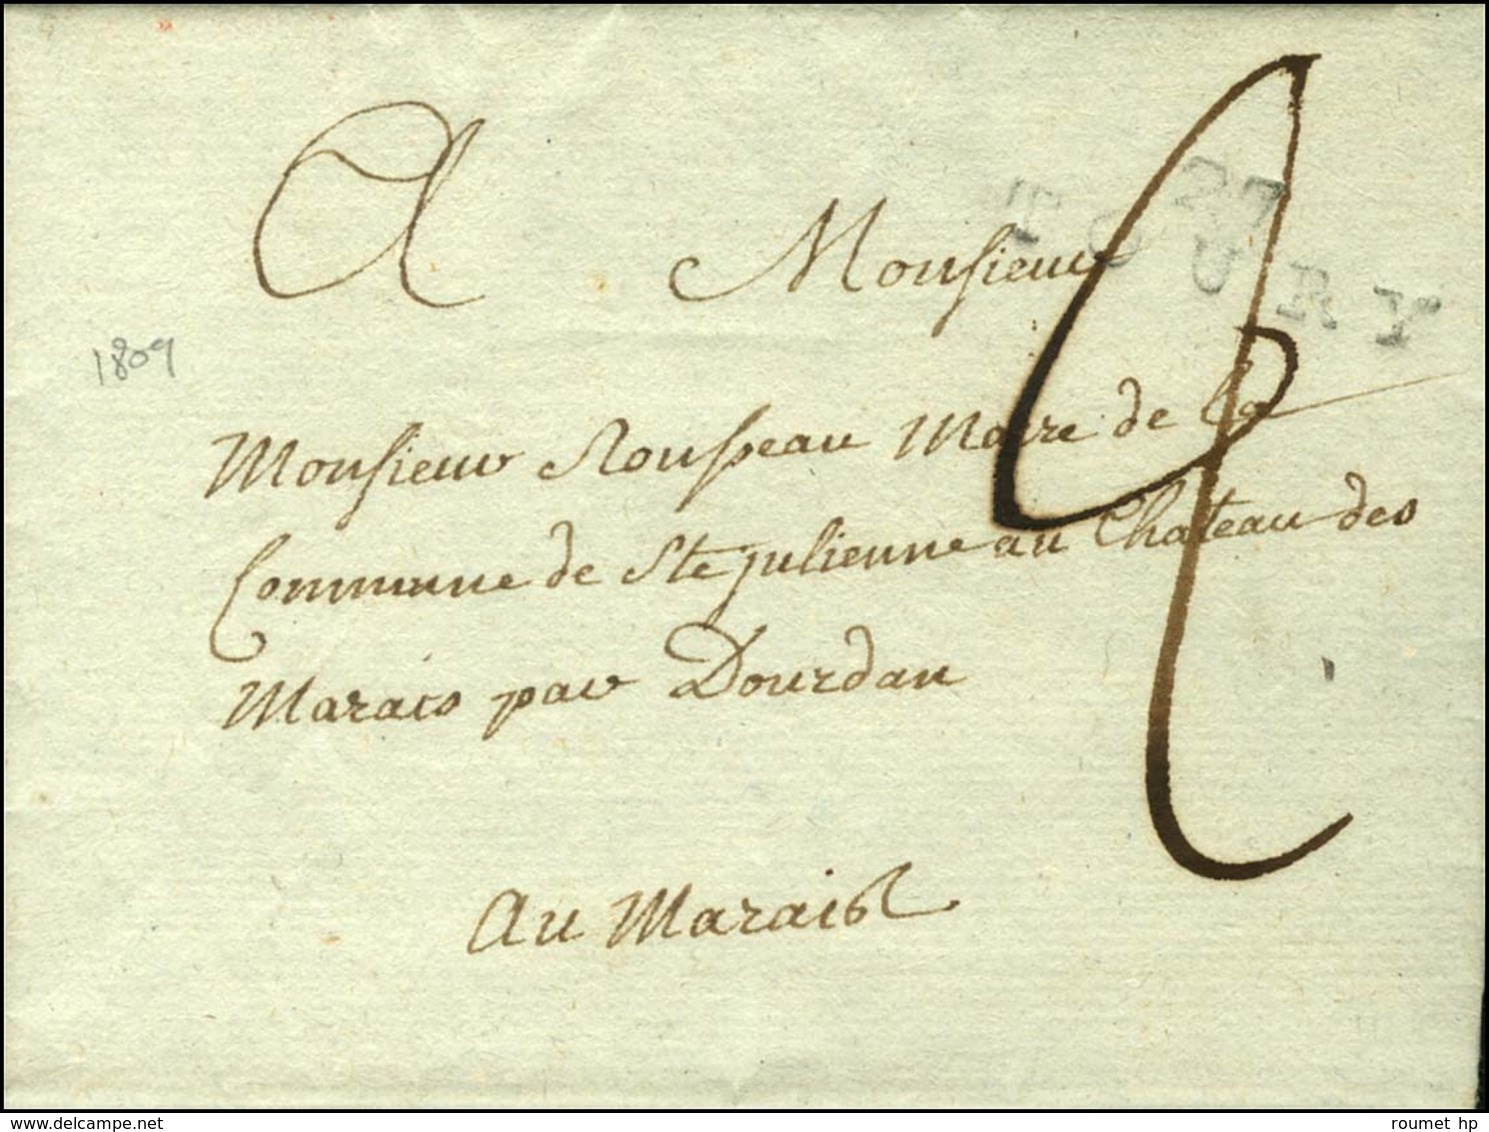 A Monsieur
27
TOURY
1809
Monsieur Rousseau Maire de la
Commune de Ste julienne au Chateau des
Marais par Dourdan
au Marais
4
www.delcampe.net
roumet hp